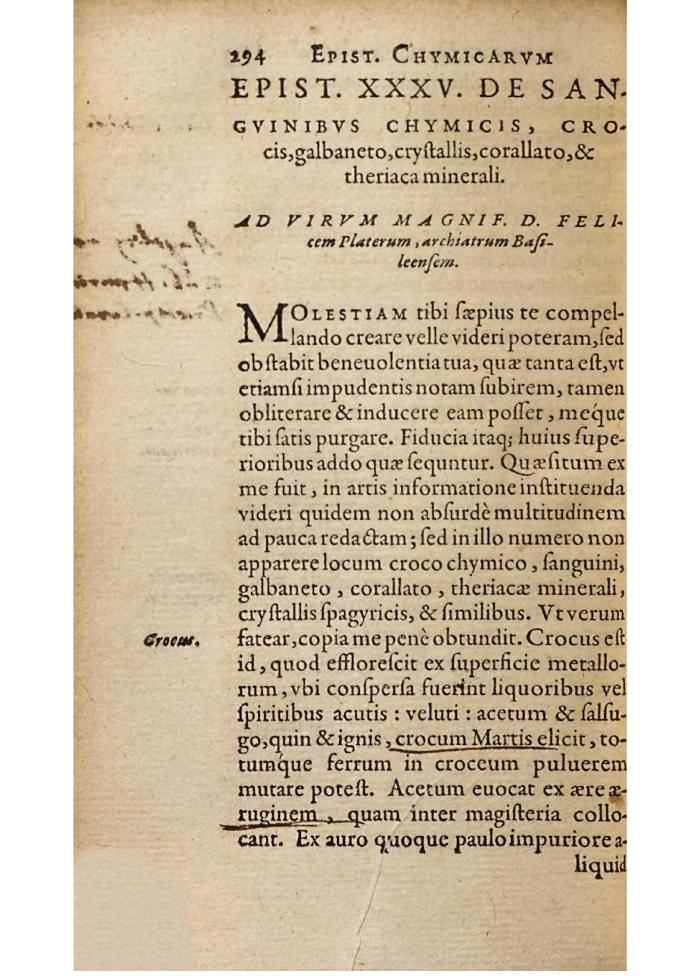 294 EPIST. CHYMICARVM
EPIST. XXXV. DE SAN-
GVINIBVS CHYMICIS, CRO-
cis,galbaneto,cryſtallis,corallato,&
theriaca minerali.
AD VIRVM MAGNIF. D. FELI-
cem Platerum, archiatrum Baſi-
leenſem.
MOLESTIAM tibi ſæpius te compel-
lando creare velle videri poteram,ſed
obſtabit beneuolentia tua, quæ tanta eſt,vt
etiamſi impudentis notam ſubirem, tamen
obliterare & inducere eam poſſet, méque
tibi ſatis purgare. Fiducia itaq; huius ſupe-
rioribus addo quæ ſequntur. Quæſitum ex
me fuit, in artis informatione inſtituenda
videri quidem non abſurdè multitudinem
ad pauca redactam; ſed in illo numero non
apparere locum croco chymico, ſanguini,
galbaneto, corallato, theriacæ minerali,
cryſtallis ſpagyricis, & ſimilibus. Vt verum
fatear,copia me penè obtundit. Crocus eſt
Crocus.
id, quod effloreſcit ex ſuperficie metallo-
rum, vbi conſperſa fuerint liquoribus vel
ſpiritibus acutis : veluti : acetum & ſalſu-
go,quin & ignis, crocum Martis elicit, to-
tumq́ue ferrum in croceum puluerem
mutare poteſt. Acetum euocat ex ære æ-
ruginem, quam inter magiſteria collo-
cant. Ex auro quoque paulo impuriore a-
liquid